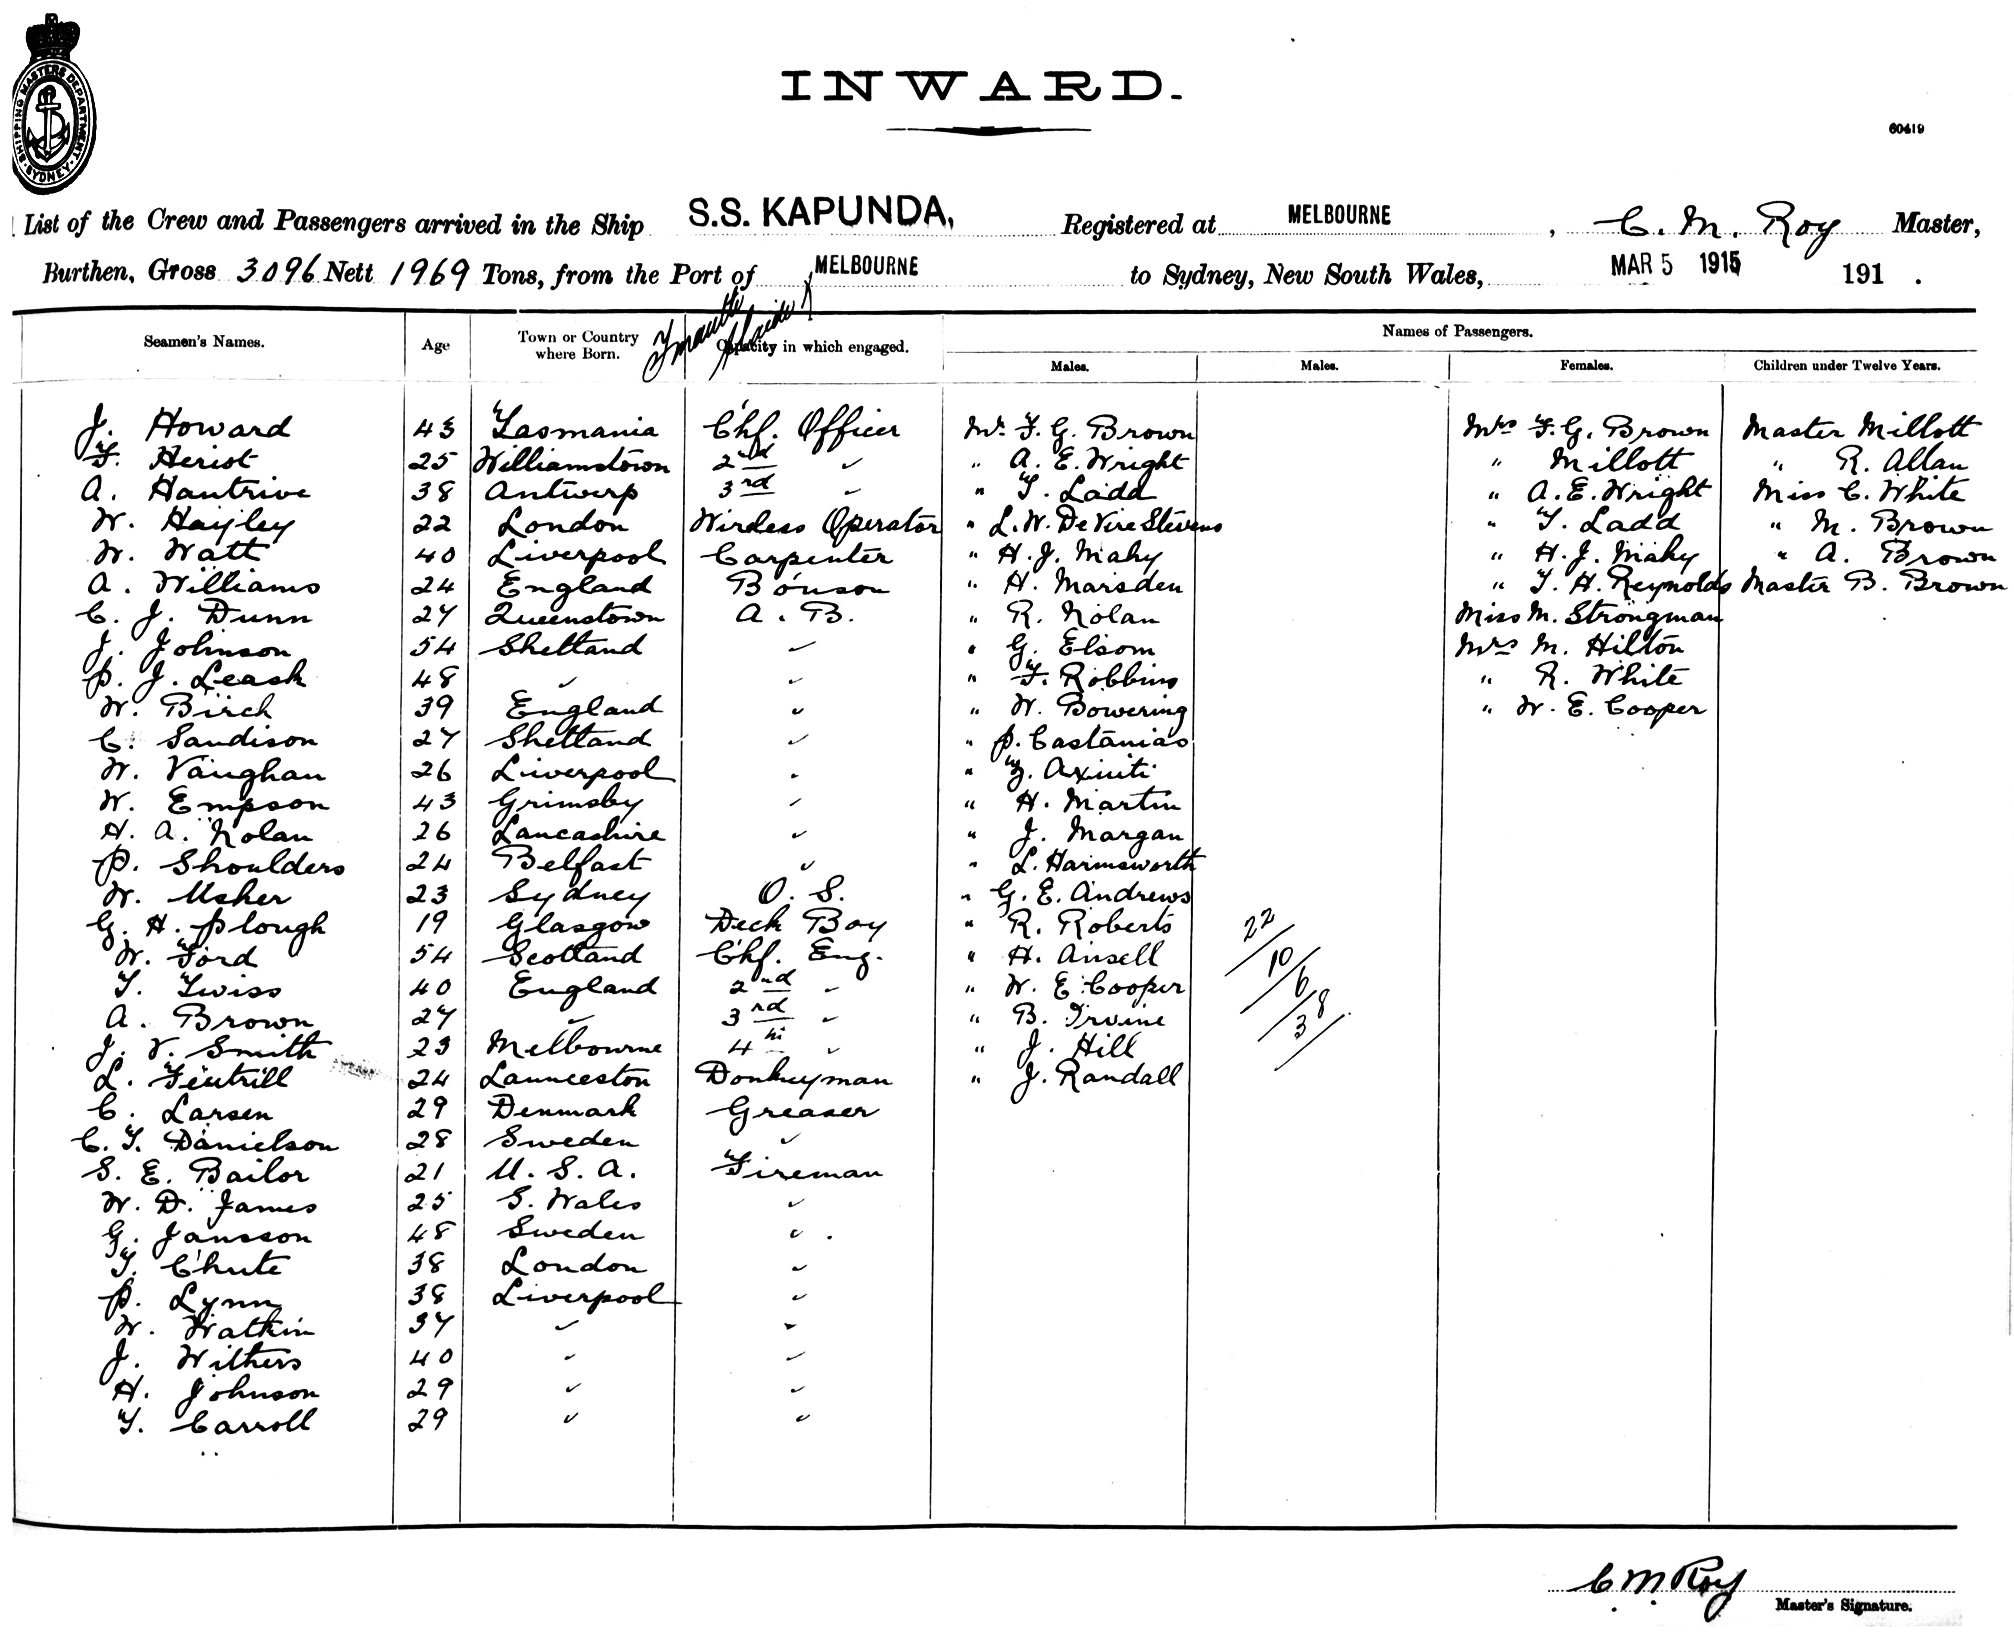 SHIPPING MASTERS DEPARTMENT. SYDNEY.
INWARD.
60419
List of the Crew and Passengers arrived in the Ship S.S. KAPUNDA, Registered at MELBOURNE, C. M. Roy Master,
Burthen, Gross 3096 Nett 1969 Tons, from the Port of MELBOURNE to Sydney, New South Wales, MAR 5 1915 191 .
Fmantle
Adlaide
Names of Passengers.
Seamen's Names. Age Town or Country where Born. Capacity in which engaged. Males. Males. Females. Children under Twelve Years.
J. Howard 43 Tasmania Chf. Officer Mr. F. G. Brown Mrs F. G. Brown Master Millott
F. Heriot 25 Williamstown 2nd " " A. E. Wright " Millott " R. Allan
A. Hantrive 38 Antwerp 3rd " " T. Ladd " A. E. Wright Miss C. White
W. Hayley 22 London Wireless Operator " L. W. De Vire Stevens " T. Ladd " M. Brown
W. Watt 40 Liverpool Carpenter " H. J. Mahy " H. J. Mahy " A. Brown
A. Williams 24 England Bo'nson " H. Marsden " T. H. Reynolds Master B. Brown
C. J. Dunn 27 Queenstown A. B. " R. Nolan Miss M. Strongman
J. Johnson 54 Shetland " " G. Elsom Mrs M. Hilton
P. J. Leask 48 " " " F. Robbins " R. White
W. Birch 39 England " " W. Bowering " W. E. Cooper
C. Sandison 27 Shetland " " P. Castanias
W. Vaughan 26 Liverpool " " Z. Axiuti
W. Empson 43 Grimsby " " H. Martin
H. A. Nolan 26 Lancashire " " J. Margan
P. Shoulders 24 Belfast " " L. Harmsworth
W. Usher 23 Sydney O. S. " G. E. Andrews
G. H. Plough 19 Glasgow Deck Boy " R. Roberts 22
W. Ford 54 Scotland Chf. Eng. " H. Ansell 10
T. Twiss 40 England 2nd " " W. E. Cooper 6
A. Brown 27 " 3rd " " B. Irvine 38
J. V. Smith 23 Melbourne 4th " " J. Hill
L. Fentrill 24 Launceston Donkeyman " J. Randall
C. Larsen 29 Denmark Greaser
C. T. Danielson 28 Sweden "
S. E. Bailor 21 U. S. A. Fireman
W. D. James 25 S. Wales "
G. Jansson 48 Sweden "
T. Chute 38 London "
P. Lynn 38 Liverpool "
W. Watkin 37 " "
J. Withers 40 " "
H. Johnson 29 " "
T. Carroll 29 " "
C M Roy
Master's Signature.